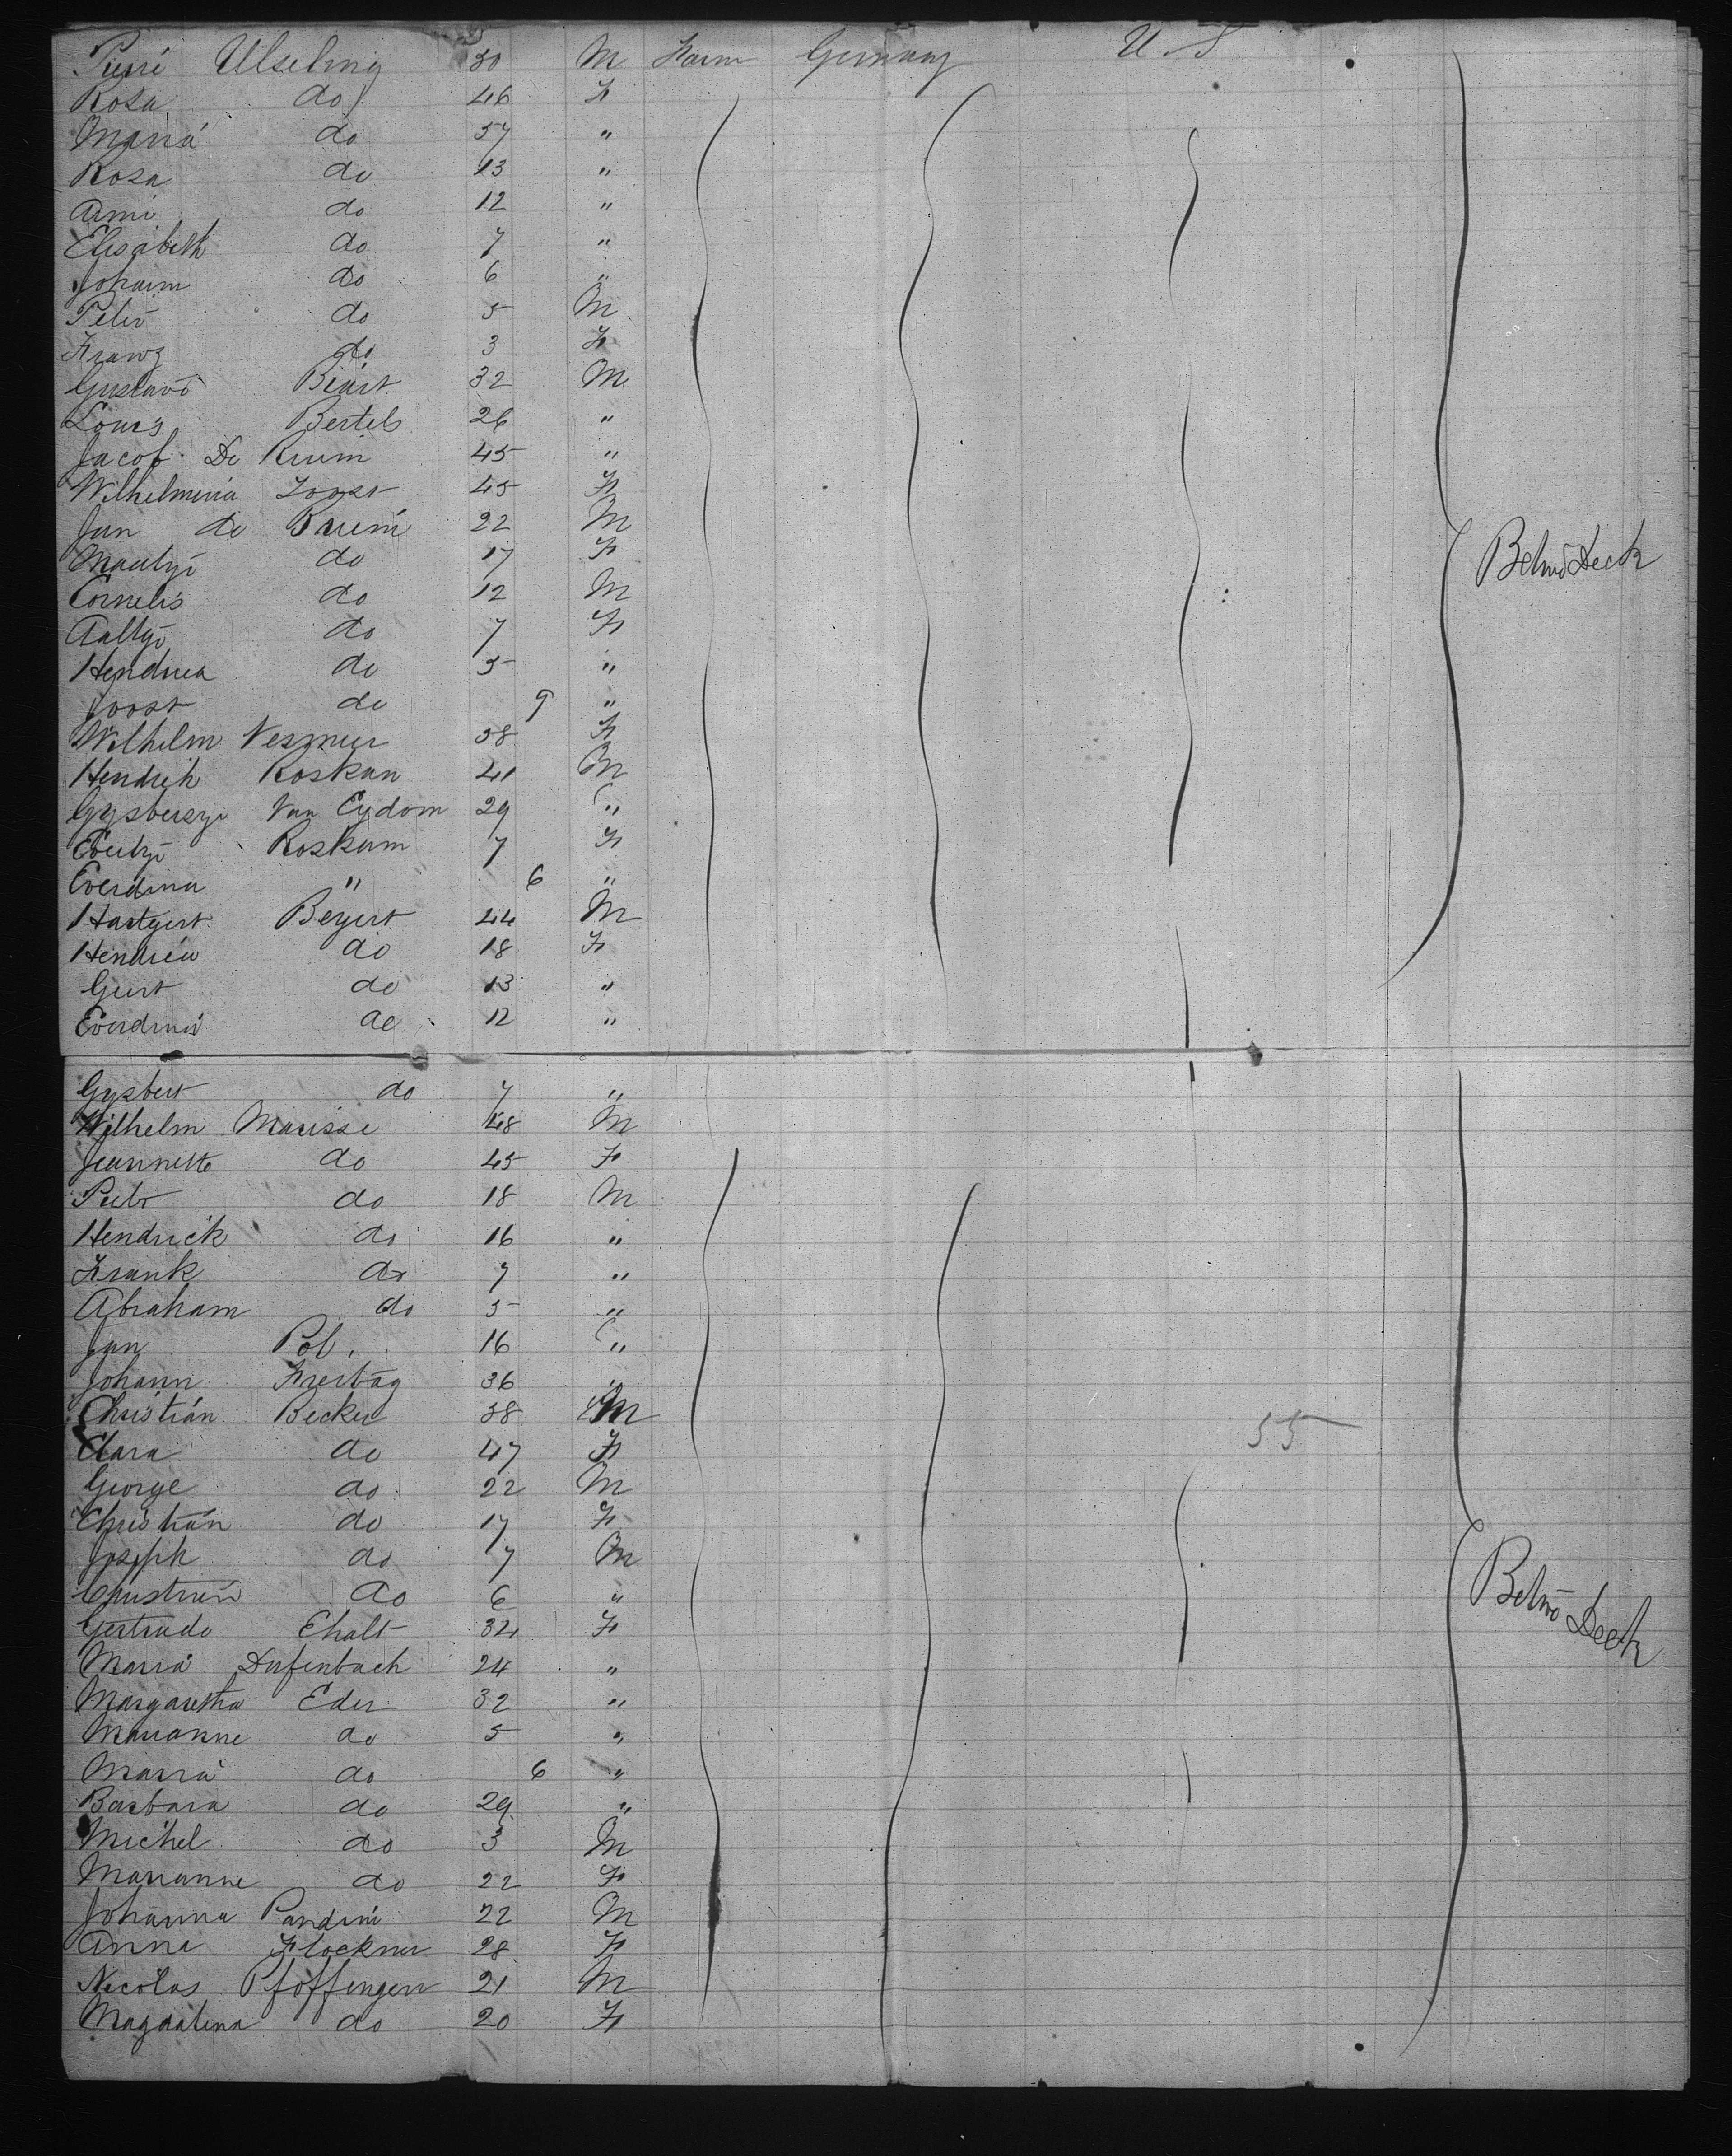 Pierre Ulseling 30 M Farm Germany U S
Rosa do 46 F
Maria do 57 "
Rosa do 13 "
do 12 "
Elisabeth do 7 "
Johann do 6 "
Peter do 5 M
Franz do 3 F
Gustave Biart 32 M
Louis Bertels 26 "
Jacob De 45 "
Wilhelmina Joost 45 F
Jan de Bruin 22 M
Maatije do 17 F
Cornelis do 12 M
Aaltje do 7 F
Hendrica do 5 "
Joost do 9 "
Wilhelm 38 F
Hendrik Roskam 41 M
Van Eydom 29 "
Evertje Roskam 7 F
Everdina " 6 "
Hartgert Beyert 44 M
do 18 F
Geert do 13 "
Everdina do 12 "
Gysbert do 7 "
Wilhelm Marisse 48 M
Jeannette do 45 F
Pieter do 18 M
Hendrick do 16 "
Frank do 7 "
Abraham do 5 "
Jan Pol. 16 "
Johann Freitag 36 "
Christian Becker 38 M
Clara do 47 F
George do 22 M
Christian do 17 F
Joseph do 7 M
Christian do 6 "
Gertrude Ehalt 32 F
Maria Dufenbach 24 "
Margaretha Eder 32 "
Marianne do 5 "
Maria do 6 "
Barbara do 29 "
Michel do 3 M
Marianne do 22 F
Johanna Pandini 22 M
Anna Flockner 28 F
Nicolas Pfoffinger 21 M
Magdalena do 20 F
Betwe Deck
55
Betwe Deck